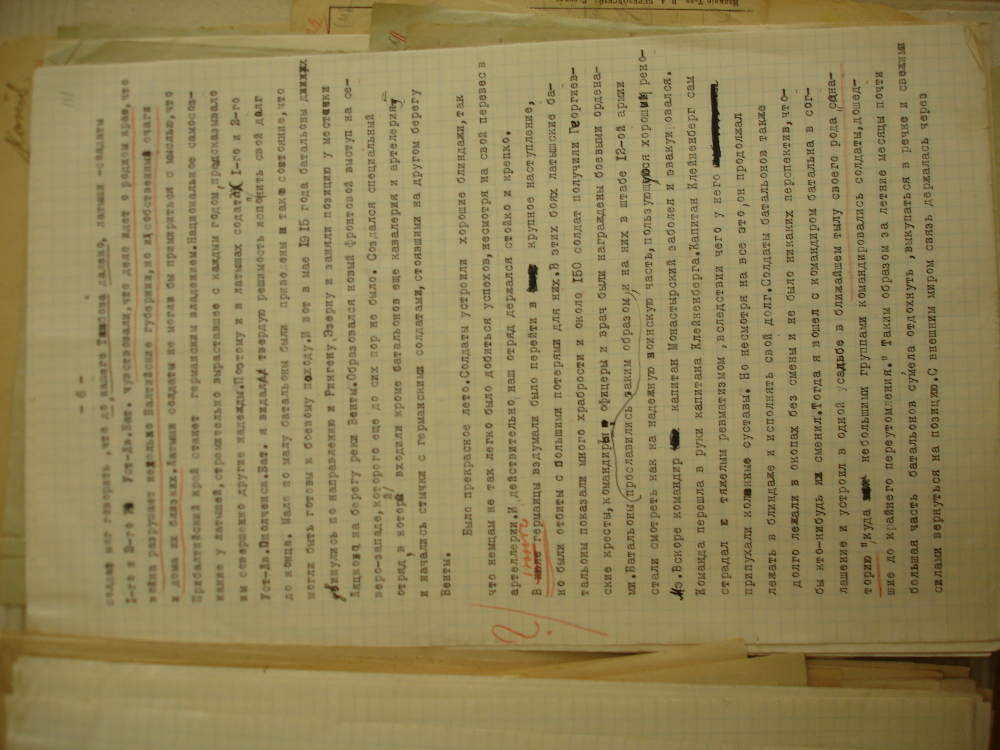 - 6 -
солдат мог говорить, что до нашего Тамбова далеко, латыши-солдаты
1-го и 2-го Уст-Дв.Бат. чувствовали, что дело идет о родном крае, что
война разрушает не только Балтийские губернии, но и собственный очаги
и дома их близких. Латыши солдаты не могли бы примириться с мыслью, что
Прибалтийский край станет германским владением. Национальное самосоз-
нание у латышей, стремительно выраставшее с каждым годом, предсказывало
им совершенно другие надежды. Поэтому и в латышах солдатах 1-го и 2-го
Уст-Дв. Ополченск. Бат. я видал твердую решимость исполнить свой долг
до конца. Мало по малу батальоны были приведены в такое состояние, что
могли быть готовы к боевому походу. И вот в мае 1915 года батальоны
двинулись по направлению и Рингену, Эзерну и заняли позицию у местечки
Ляцково на берегу реки Венты. Образовался новый фронтовой выступ на се-
веро-западе, которого еще до сих пор не было. Создался специальный
отряд, в который входили кроме батальонов еще кавалерия и артелерия,
и начались стычки с германскими солдатами, стоявшими на другом берегу
Венты.
Было прекрасное лето. Солдаты устроили хорошие блиндажи, так
что немцам не так легко было добиться успехов, несмотря на свой перевес в
артеллерии. И действительно наш отряд держался стойко и крепко.
В июле германцы вздумали было перейти в крупное наступление,
но были отбиты с большими потерями для них. В этих боях латышские ба-
тальоны показали много храбрости и около 150 солдат получили Георгиев-
ские кресты, командиры, офицеры и врач были награждены боевыми ордена-
ми. Батальоны прославились таким образом, и на них в штабе 12-ой армии
стали смотреть как на надежную воинскую часть, пользующуюся хороший рено-
мэ. Вскоре командир капитан Монастырский заболел и эвакуировался.
Команда перешла в руки капитана Клейненберга. Капитан Клейненберг сам
страдал тяжелым ревматизмом, вследствии чего у него
припухали коленные суставы. Но несмотря на все это, он продолжал
лежать в блиндаже и исполнять свой долг. Солдаты батальонов также
долго лежали в окопах без смены и не было никаких перспектив, что-
бы кто-нибудь их сменил. Тогда я вошел с командиром батальна в сог-
лашение и устроил в одной усадьбе в ближайшем тылу своего рода сана-
торию "куда небольшими группами командировались солдаты, дошед-
шие до крайнего переутомления." Таким образом за летние месяцы почти
большая часть батальонов сумела отдохнуть, выкупаться в речке и свежими
силами вернуться на позицию. С внешним миром связь держалась через